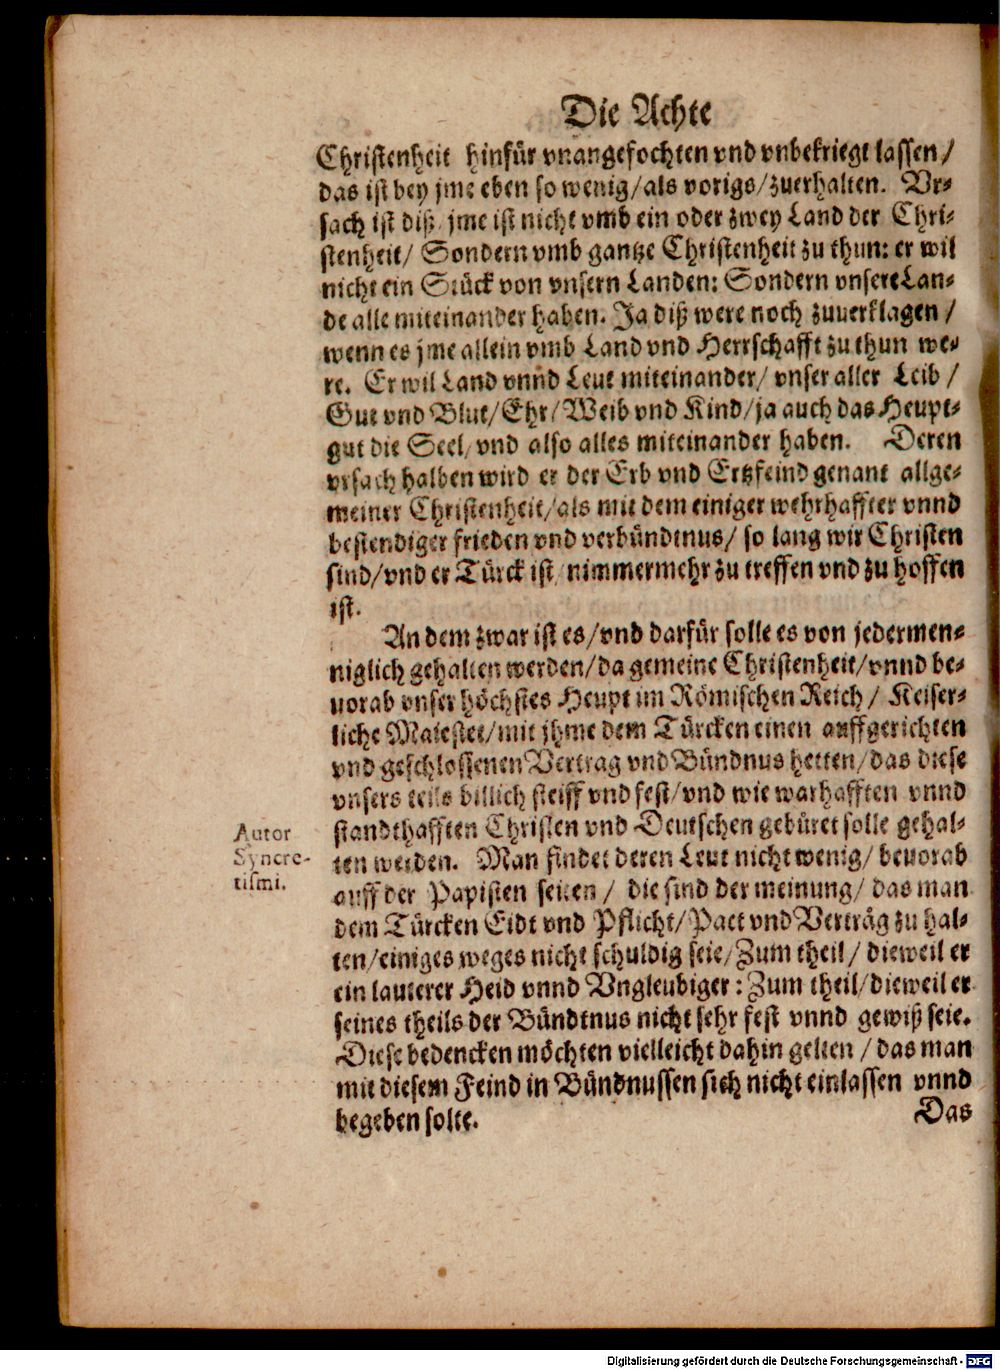 Die Achte
Christenheit hinfür vnangefochten vnd vnbekriegt lassen/
das ist bey jme eben so wenig/als vorigs/zuerhalten. Vr-
sach ist diß/jme ist nicht vmb ein oder zwey Land der Chri-
stenheit/ Sondern vmb gantze Christenheit zu thun: er wil
nicht ein Stück von vnsern Landen: Sondern vnsere Lan-
de alle miteinander haben. Ja diß were noch zuuerklagen/
wenn es jme allein vmb Land vnd Herrschafft zu thun we-
re. Er wil Land vnnd Leut miteinander/ vnser aller Leib/
Gut vnd Blut/Ehr/Weib vnd Kind/ja auch das Heupt-
gut die Seel/vnd also alles miteinander haben. Deren
vrsach halben wird er der Erb vnd Ertzfeind genant allge-
meiner Christenheit/als mit dem einiger wehrhaffter vnnd
bestendiger frieden vnd verbündtnus/ so lang wir Christen
sind/vnd er Türck ist/nimmermehr zu treffen vnd zu hoffen
ist.
An dem zwar ist es/vnd darfür solle es von jedermen-
niglich gehalten werden/da gemeine Christenheit/vnnd be-
uorab vnser höchstes Heupt im Römischen Reich/ Keiser-
liche Maiestet/mit jhme dem Türcken einen auffgerichten
vnd geschlossenen Vertrag vnd Bündnus hetten/das diese
vnsers teils billich steiff vnd fest/vnd wie warhafften vnnd
standthafften Christen vnd Deutschen gebüret solle gehal-
ten werden. Man findet deren Leut nicht wenig/ beuorab
auff der Papisten seiten/ die sind der meinung/ das man
dem Türcken Eidt vnd Pflicht/Pact vnd Verträg zu hal-
ten/einiges weges nicht schuldig seie/Zum theil/ dieweil er
ein lauterer Heid vnnd Vngleubiger: Zum theil/dieweil er
seines theils der Bündtnus nicht sehr fest vnnd gewiß seie.
Diese bedencken möchten vielleicht dahin gelten/das man
mit diesem Feind in Bündnussen sich nicht einlassen vnnd
begeben solte.
Das
Autor
Syncre-
tismi.
Digitalisierung gefördert durch die Deutsche Forschungsgemeinschaft - DFG